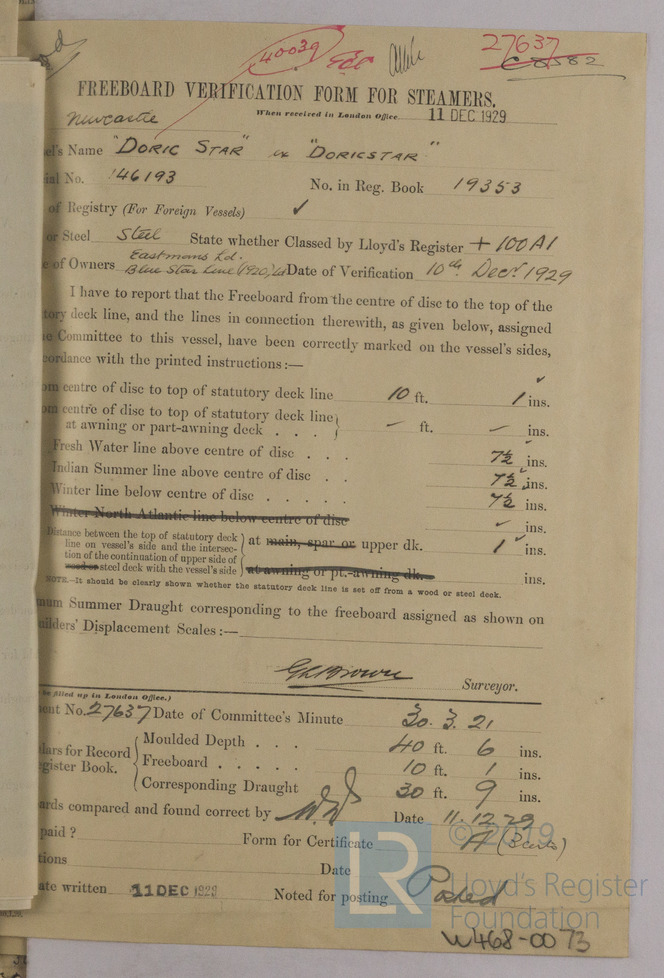 40039
27637
C 8582
FREEBOARD VERIFICATION FORM FOR STEAMERS.
When received in London Office 11 DEC 1929
Newcastle
el's Name "DORIC STAR" ex "DORICSTAR"
ial No. 146193 No. in Reg. Book 19353
of Registry (For Foreign Vessels) ✓
or Steel Steel State whether Classed by Lloyd's Register + 100A1
Eastmans Ld.
e of Owners Blue Star Line (1920) Ld Date of Verification 10th Decr 1929
I have to report that the Freeboard from the centre of disc to top of the
tory deck line, and the lines in connection therewith, as given below, assigned
e Committee to this vessel, have been correctly marked on the vessel's sides,
cordance with the printed instructions:—
om centre of disc to top of statutory deck line 10 ft. 1 ins.
om centre of disc to top of statutory deck line
at awning or part-awning deck . . . – ft. – ins.
Fresh Water line above centre of disc . . . 7½ ins.
Indian Summer line above centre of disc . . 7½ ins.
Winter line below centre of disc . . . . . 7½ ins.
Winter North Atlantic line below centre of disc ✓ ins.
Distance between the top of statutory deck
line on vessel's side and the intersec-
tion of the continuation of upper side of
wood or steel deck with the vessel's side
at main, spar or upper dk. 1 ins.
at awning or pt.-awning dk. ins.
NOTE.—It should be clearly shown whether the statutory deck line is set off from a wood or steel deck.
mum Summer Draught corresponding to the freeboard assigned as shown on
uilders' Displacement Scales:—
Surveyor.
be filled up in London Office.)
ent No. 27637 Date of Committee's Minute 30. 3. 21
lars for Record
gister Book.
Moulded Depth . . . 40 ft. 6 ins.
Freeboard . . . . . 10 ft. 1 ins.
Corresponding Draught 30 ft. 9 ins.
ards compared and found correct by Date 11.12.29
paid ? Form for Certificate A (3 certs)
tions Date
ate written 11 DEC 1929 Noted for posting Posted
© 2019
LR Lloyd's Register
Foundation
W468-0073